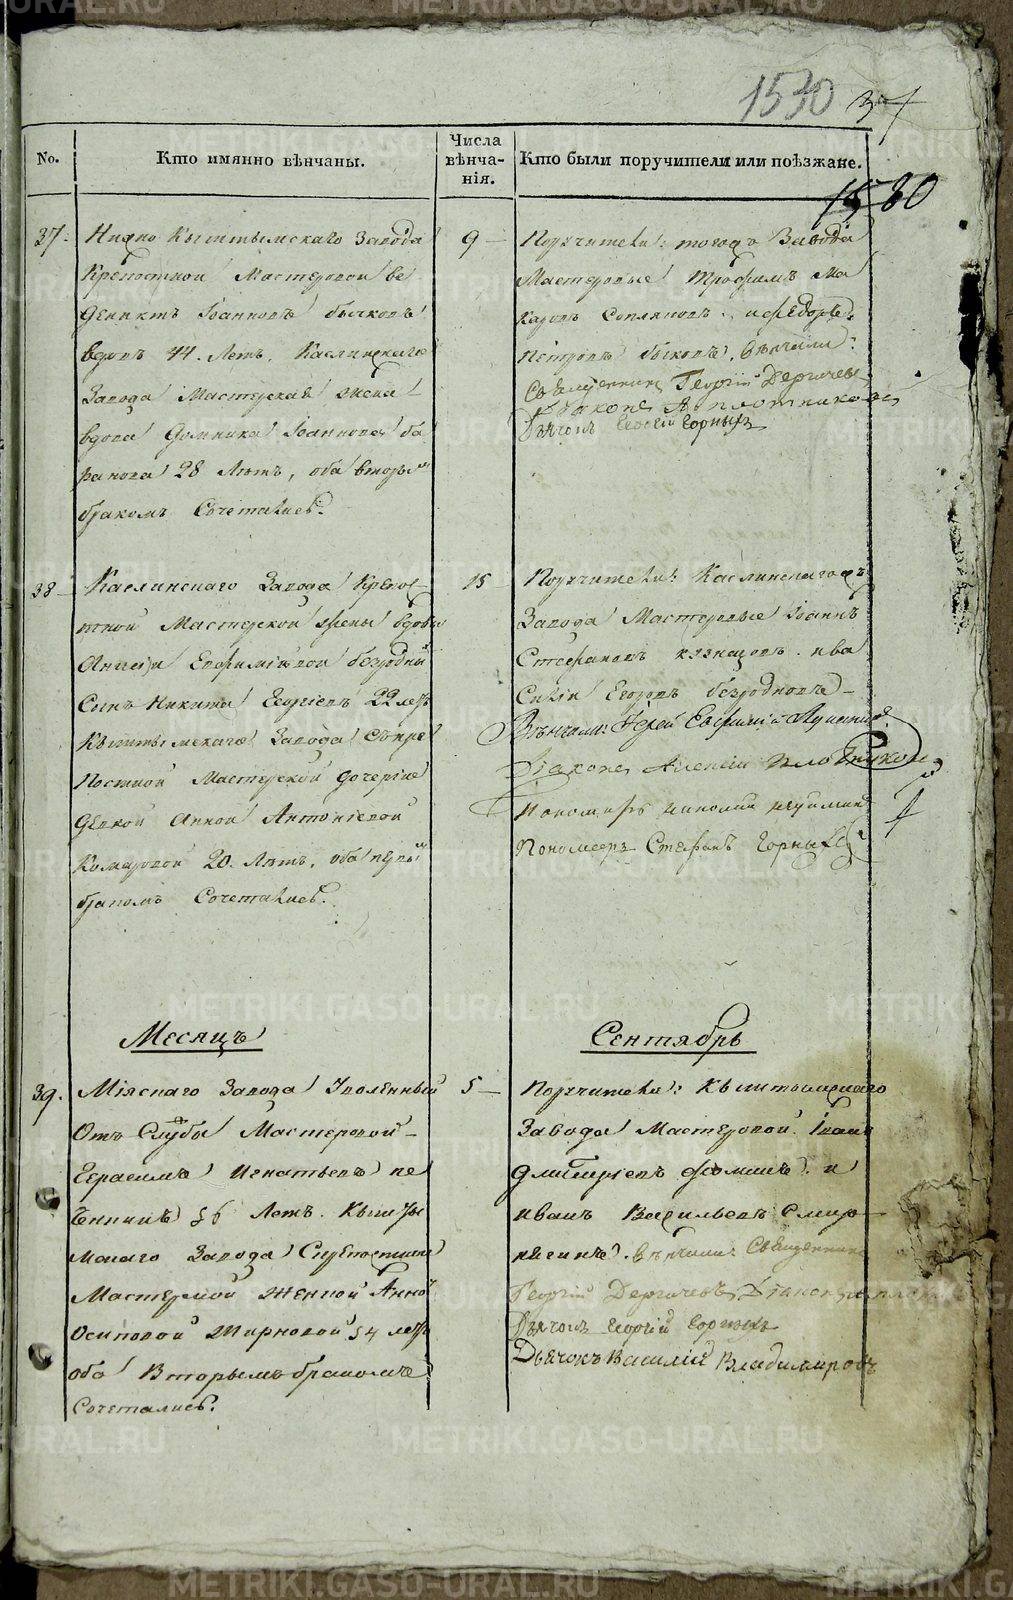 1530 37
No. Кто имянно вѣнчаны. Числа вѣнча-нія. Кто были поручители или поѣзжане.
1530
37. Нижно Кыштымскаго Завода
Крепостной Мастеровой Ве
дениктъ Іоанновъ бычковъ
вдовъ 44. Летъ, Каслинскаго
Завода Мастерская жена
вдова Домника Іоаннова ба
ранова 28 Лѣтъ, оба вторы
бракомъ Сочетались.
9
Поручители: тогожъ Завода
Мастеровые Трофимъ Ма
каровъ, и Федоръ
Петровъ быковъ. вѣнчали:
Священникъ Георгій Дергачевъ
Діаконъ А Плотниковъ
Дьячокъ Георгій Горныхъ
38 Каслинскаго Завода Крепос
тной Мастерской жены вдовы
Ефимовой безродной
Сынъ Никита Георгіевъ 22 летъ
Кыштымскаго Завода Съ кре
постной Мастерской дочерью
девкой Анной Антоніевой
Комаровой 20. Лѣтъ, оба первы
бракомъ Сочетались.
15
Поручители: Каслинскагожъ
Завода Мастеровые Іоаннъ
Стефановъ кузнецовъ. и Ва
силій Егоровъ безродновъ
Вѣнчали: Іерей Евфимій
Діаконъ Алексій Плотниковъ
Пономарь николай
Пономарь Стефанъ Горныхъ
Месяцъ Сентябрь
39. Міяскаго Завода Уволенный
Отъ Службы Мастеровой
Герасимъ Игнатьевъ пе
56 Летъ. Кышты
мскаго Завода Съ крепостной
Мастерской женкой Анной
Осиповой Ширковой 54 летъ
оба Вторымъ бракомъ
Сочетались.
5
Поручители: Кыштымскаго
Завода Мастеровой Іванъ
Дмитріевъ фоминъ. и
иванъ Васильевъ Смир
нягинъ. вѣнчали: Священникъ
Георгій Дергачевъ, Діаконъ
Дьячокъ Георгій Горныхъ
Дьячокъ Василій Владимировъ
METRIKI.GASO-URAL.RU